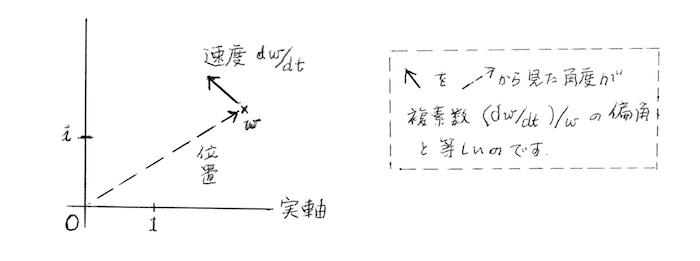 速度 dw/dt
w
位置
i
O
1
実軸
↖ を ↗ から見た角度が
複素数 (dw/dt)/w の偏角
と等しいのです.